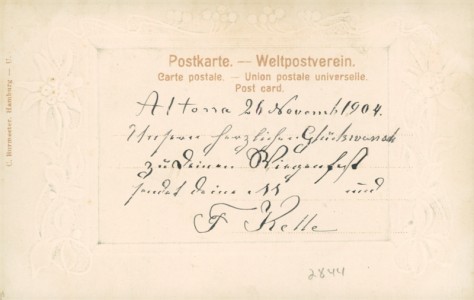 Postkarte. — Weltpostverein.
Carte postale. — Union postale universelle.
Post card.
Altona 26 Novemb 1904.
Unsern herzlichen Glückwunsch
zu Deinem Wiegenfest
sendet deine M und
F Kelle
2844
C. Bormaster, Hamburg — U.